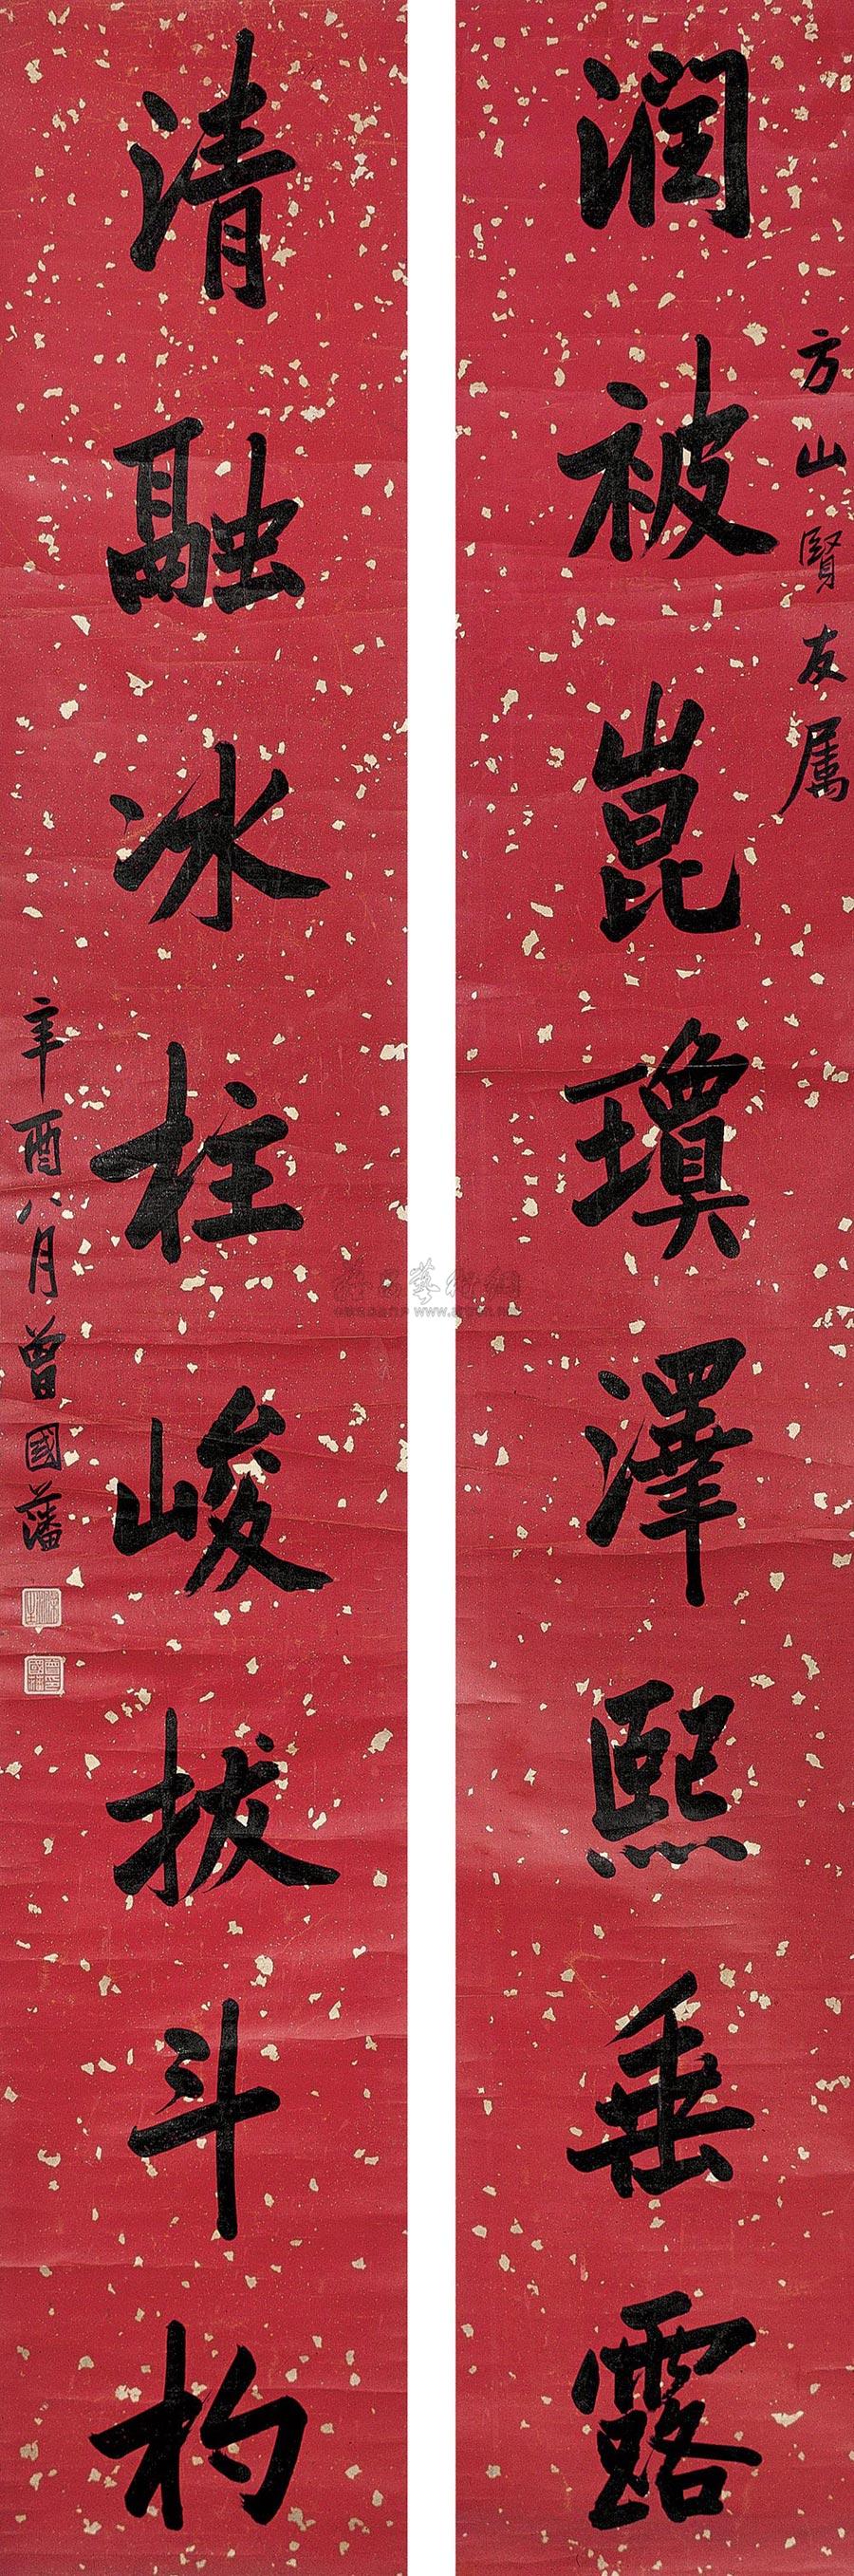 润被崑瓊澤熙垂露
方山賢友属
清融冰柱峻拔斗杓
辛酉八月曾國藩